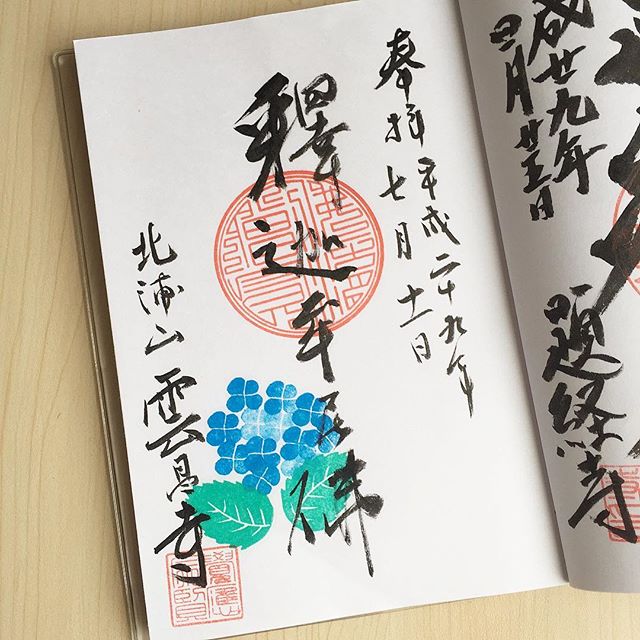 成廿九年
月廿五日
題経寺
奉拝
平成二十九年
七月十一日
釋迦牟尼佛
北浦山 雲昌寺